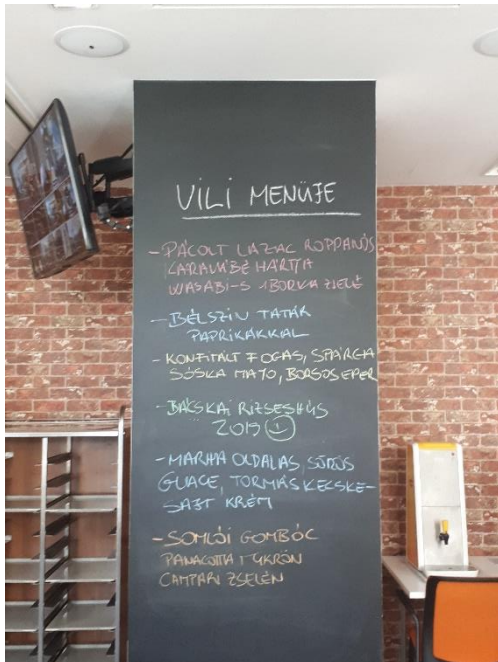 VILI MENÜJE
- PÁCOLT LAZAC ROPPANÓS
KARALÁBÉ HÁRTYA
WASABI-S UBORKA ZSELÉ
- BÉLSZÍN TATÁR
PAPRIKÁKKAL
- KONFITÁLT FOGAS, SPÁRGA
SÓSKA MAJO, BORSOS EPER
- BÁCSKAI RIZSESHÚS
2019
- MARHA OLDALAS, SÖRÖS
GLACE, TORMÁS KECSKE-
SAJT KRÉM
- SOMLÓI GOMBÓC
PANACOTTA TÜKRÖN
CAMPARI ZSELÉN